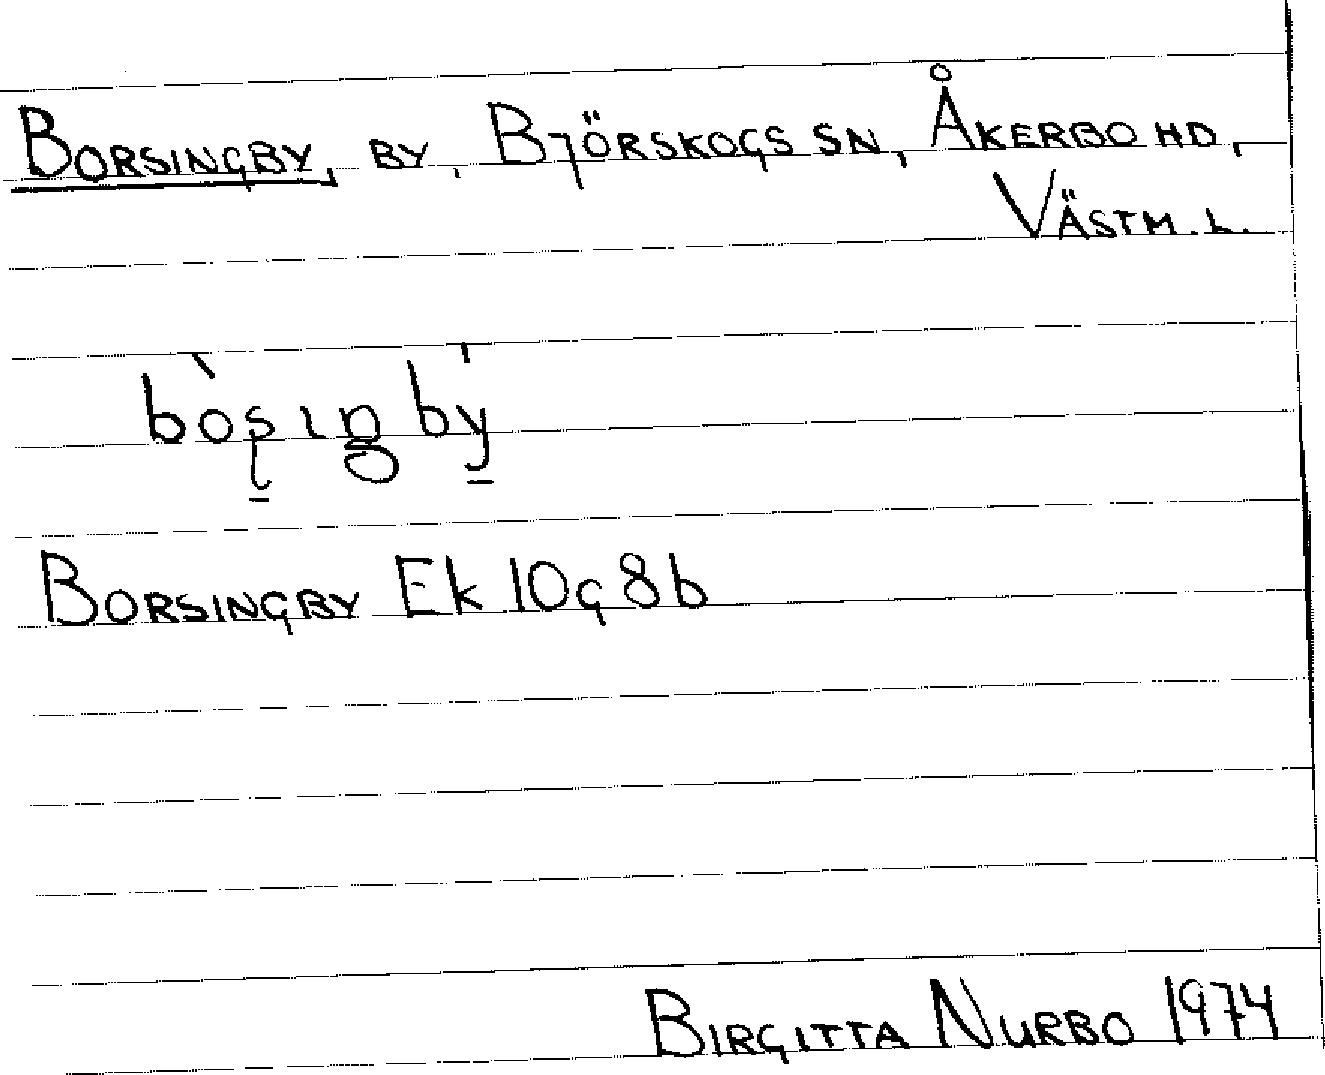 BORSINGBY, BY, BJÖRSKOGS SN, ÅKERBO HD,
VÄSTM. L.
BORSINGBY Ek 10g 8b
BIRGITTA NURBO 1974